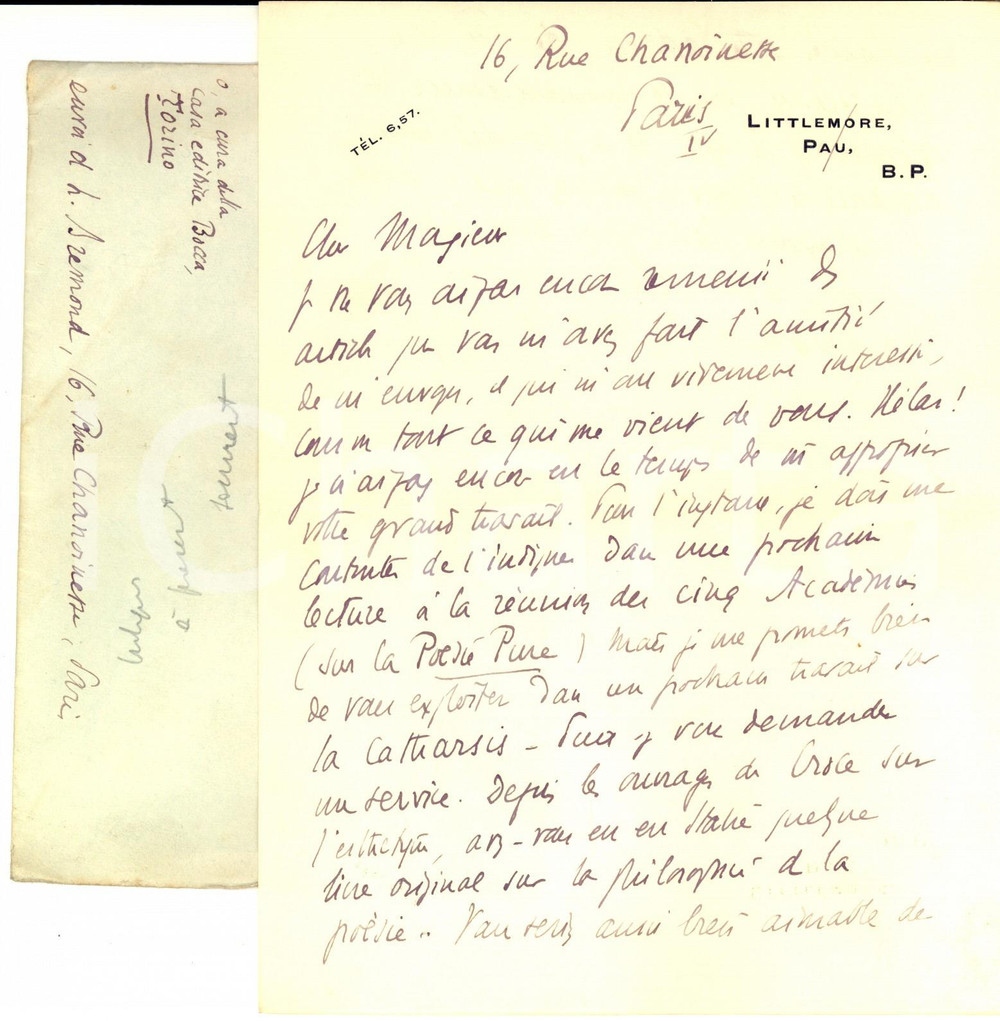 16, Rue Chanoinesse
Paris
IV
TÉL. 6,57.
LITTLEMORE,
PAU,
B. P.
Cher Monsieur
je ne vous ai pas encore remercié des
articles que vous m'avez fait l'amitié
de m'envoyer, et qui m'ont vivement intéressé,
comme tout ce qui me vient de vous. Hélas !
je n'ai pas encore eu le temps de m'approprier
votre grand travail. Pour l'instant, je dois me
contenter de l'indiquer dans une prochaine
lecture à la réunion des cinq Académies
(sur la Poésie Pure) Mais je me promets bien
de vous exploiter dans un prochain travail sur
la Catharsis - Puis-je vous demander
un service. Depuis les ouvrages de Croce sur
l'esthétique, avez-vous eu en Italie quelque
livre original sur la philosophie de la
poésie.. Vous seriez aussi bien aimable de
o, a cura della
Casa editrice Bocca,
Torino
envoi d H. Bremond, 16, Rue Chanoinesse, Paris